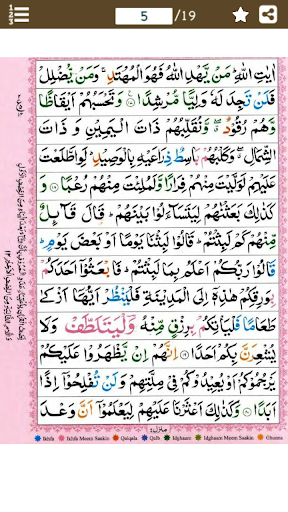 5 /19
اٰيٰتِ اللّٰهِ ؕ مَنْ يَّهْدِ اللّٰهُ فَهُوَ الْمُهْتَدِ ۚ وَمَنْ يُّضْلِلْ
فَلَنْ تَجِدَ لَهٗ وَلِيًّا مُّرْشِدًا ۝ وَتَحْسَبُهُمْ اَيْقَاظًا
وَّهُمْ رُقُوْدٌ ۖ وَّنُقَلِّبُهُمْ ذَاتَ الْيَمِيْنِ وَ ذَاتَ
الشِّمَالِ ۖ وَكَلْبُهُمْ بَاسِطٌ ذِرَاعَيْهِ بِالْوَصِيْدِ ؕ لَوِ اطَّلَعْتَ
عَلَيْهِمْ لَوَلَّيْتَ مِنْهُمْ فِرَارًا وَّلَمُلِئْتَ مِنْهُمْ رُعْبًا ۝ وَ
كَذٰلِكَ بَعَثْنٰهُمْ لِيَتَسَآءَلُوْا بَيْنَهُمْ ؕ قَالَ قَآئِلٌ
مِّنْهُمْ كَمْ لَبِثْتُمْ ؕ قَالُوْا لَبِثْنَا يَوْمًا اَوْ بَعْضَ يَوْمٍ ؕ
قَالُوْا رَبُّكُمْ اَعْلَمُ بِمَا لَبِثْتُمْ ؕ فَابْعَثُوْٓا اَحَدَكُمْ
بِوَرِقِكُمْ هٰذِهٖٓ اِلَى الْمَدِيْنَةِ فَلْيَنْظُرْ اَيُّهَآ اَزْكٰى
طَعَامًا فَلْيَاْتِكُمْ بِرِزْقٍ مِّنْهُ وَلْيَتَلَطَّفْ وَلَا
يُشْعِرَنَّ بِكُمْ اَحَدًا ۝ اِنَّهُمْ اِنْ يَّظْهَرُوْا عَلَيْكُمْ
يَرْجُمُوْكُمْ اَوْ يُعِيْدُوْكُمْ فِيْ مِلَّتِهِمْ وَلَنْ تُفْلِحُوْٓا اِذًا
اَبَدًا ۝ وَكَذٰلِكَ اَعْثَرْنَا عَلَيْهِمْ لِيَعْلَمُوْٓا اَنَّ وَعْدَ
منزل
Ikhfa Ikhfa Meem Saakin Qalqala Qalb Idghaam Idghaam Meem Saakin Ghunna